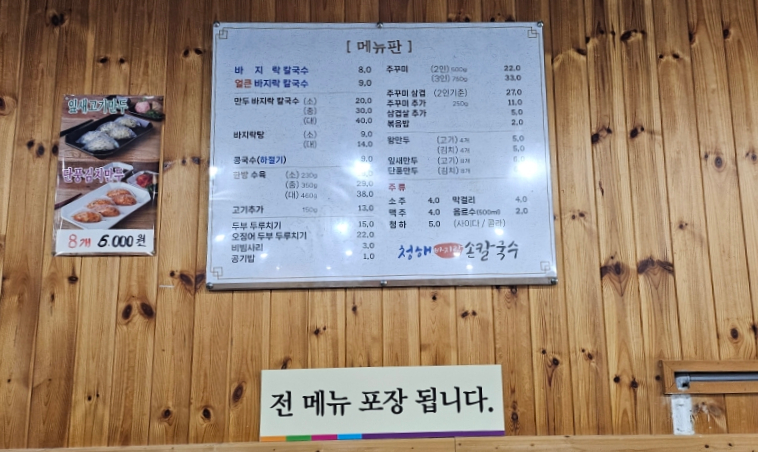 [ 메뉴판 ]
바 지 락 칼국수 8,0
얼큰 바지락 칼국수 9,0
만두 바지락 칼국수 (소) 20,0
(중) 30,0
(대) 40,0
바지락탕 (소) 9,0
(대) 14,0
콩국수(하절기) 9,0
한방 수육 (소) 230g
(중) 350g 29,0
(대) 460g 38,0
고기추가 150g 13,0
두부 두루치기 15,0
오징어 두부 두루치기 22,0
비빔사리 3,0
공기밥 1,0
주꾸미 (2인) 500g 22,0
(3인) 750g 33,0
주꾸미 삼겹 (2인기준) 27,0
주꾸미 추가 250g 11,0
삼겹살 추가 5,0
볶음밥 2,0
왕만두 (고기) 4개 5,0
(김치) 4개 5,0
잎새만두 (고기) 8개 5,0
단풍만두 (김치) 8개
주 류
소 주 4,0 막걸리 4,0
맥 주 4,0 음료수(500ml) 2,0
청 하 5,0 (사이다 / 콜라)
청해 바지락 손칼국수
잎새고기만두
단풍김치만두
8개 5,000원
전 메뉴 포장 됩니다.